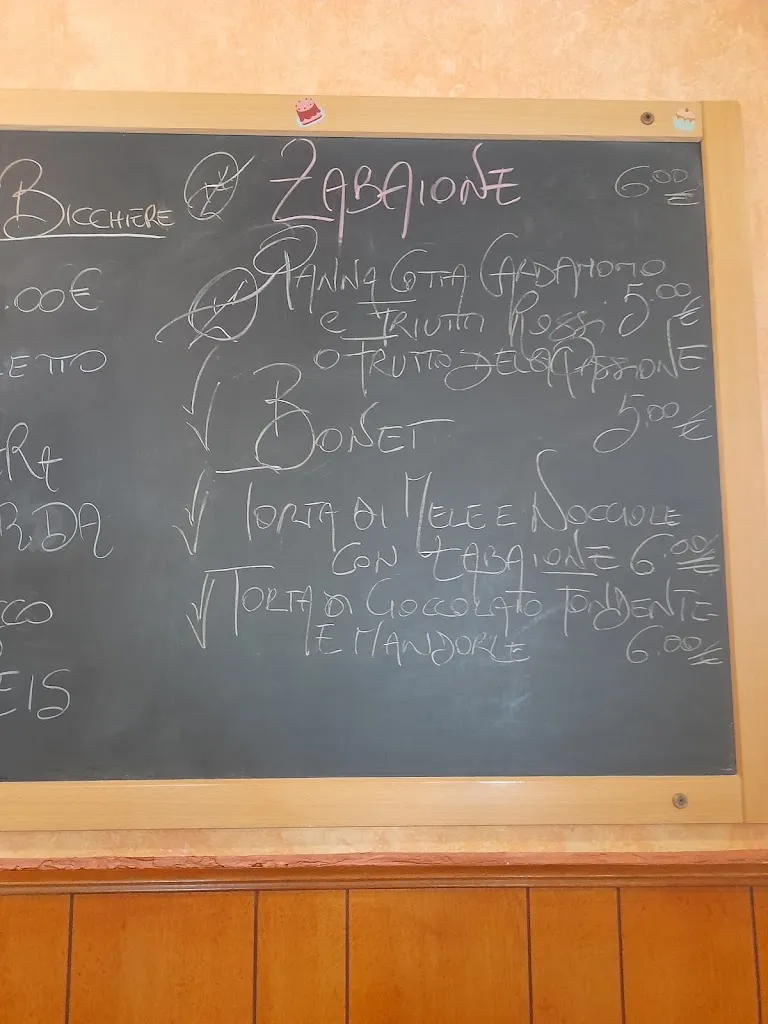 BICCHIERE
.00€
ETTO
ERA
RDA
CCO
EIS
ZABAIONE 6.00€
PANNA COTTA CARDAMOMO
E FRUTTI ROSSI 5.00€
O FRUTTO DELLA PASSIONE
BONET 5.00€
TORTA DI MELE E NOCCIOLE
CON ZABAIONE 6.00€
TORTA DI CIOCCOLATO FONDENTE
E MANDORLE 6.00€